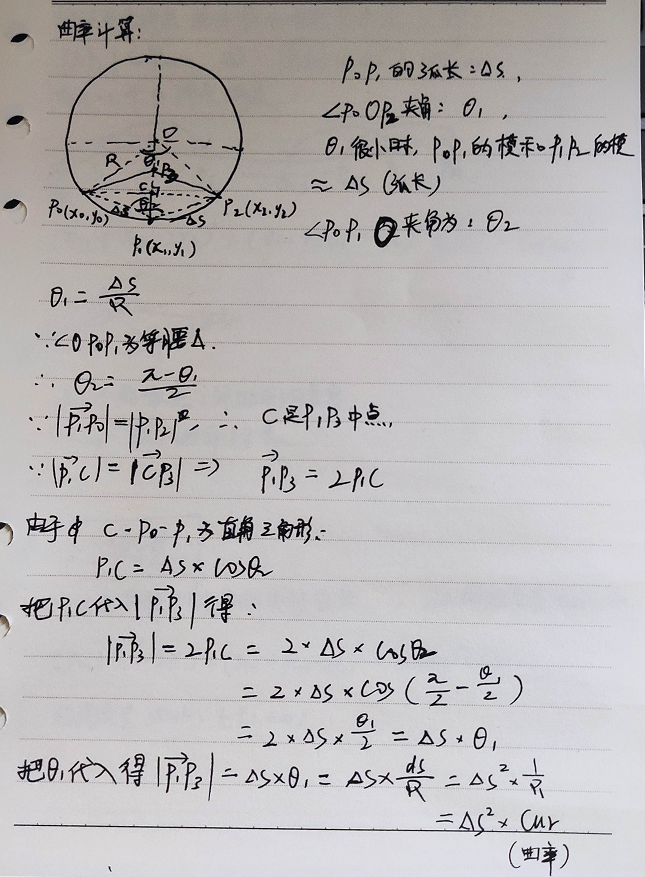 曲率计算:
P₀P₁ 的弧长:Δs,
∠P₀OP₂夹角: θ₁,
θ₁很小时, P₀P₁的模和P₁P₂的模
≈ Δs (弧长)
∠P₀P₁O夹角为: θ₂
O
R
θ₁
P₃
C
θ₂
P₀(x₀,y₀)
Δs
Δs
P₂(x₂,y₂)
P₁(x₁,y₁)
θ₁ = Δs/R
∵∠OP₀P₁为等腰Δ.
∴ θ₂ = (π-θ₁)/2
∵ |P₁P₀| = |P₁P₂|, ∴ C是P₁P₃中点,
∵ |P₁C| = |CP₃| => P₁P₃ = 2P₁C
由于 C-P₀-P₁为直角三角形:
P₁C = Δs × cosθ₂
把P₁C代入|P₁P₃|得:
|P₁P₃| = 2P₁C = 2×Δs × cosθ₂
= 2×Δs×cos(π/2 - θ₁/2)
= 2×Δs×θ₁/2 = Δs×θ₁
把θ₁代入得|P₁P₃| = Δs×θ₁ = Δs×ds/R = Δs²×1/R
= Δs²×cur
(曲率)